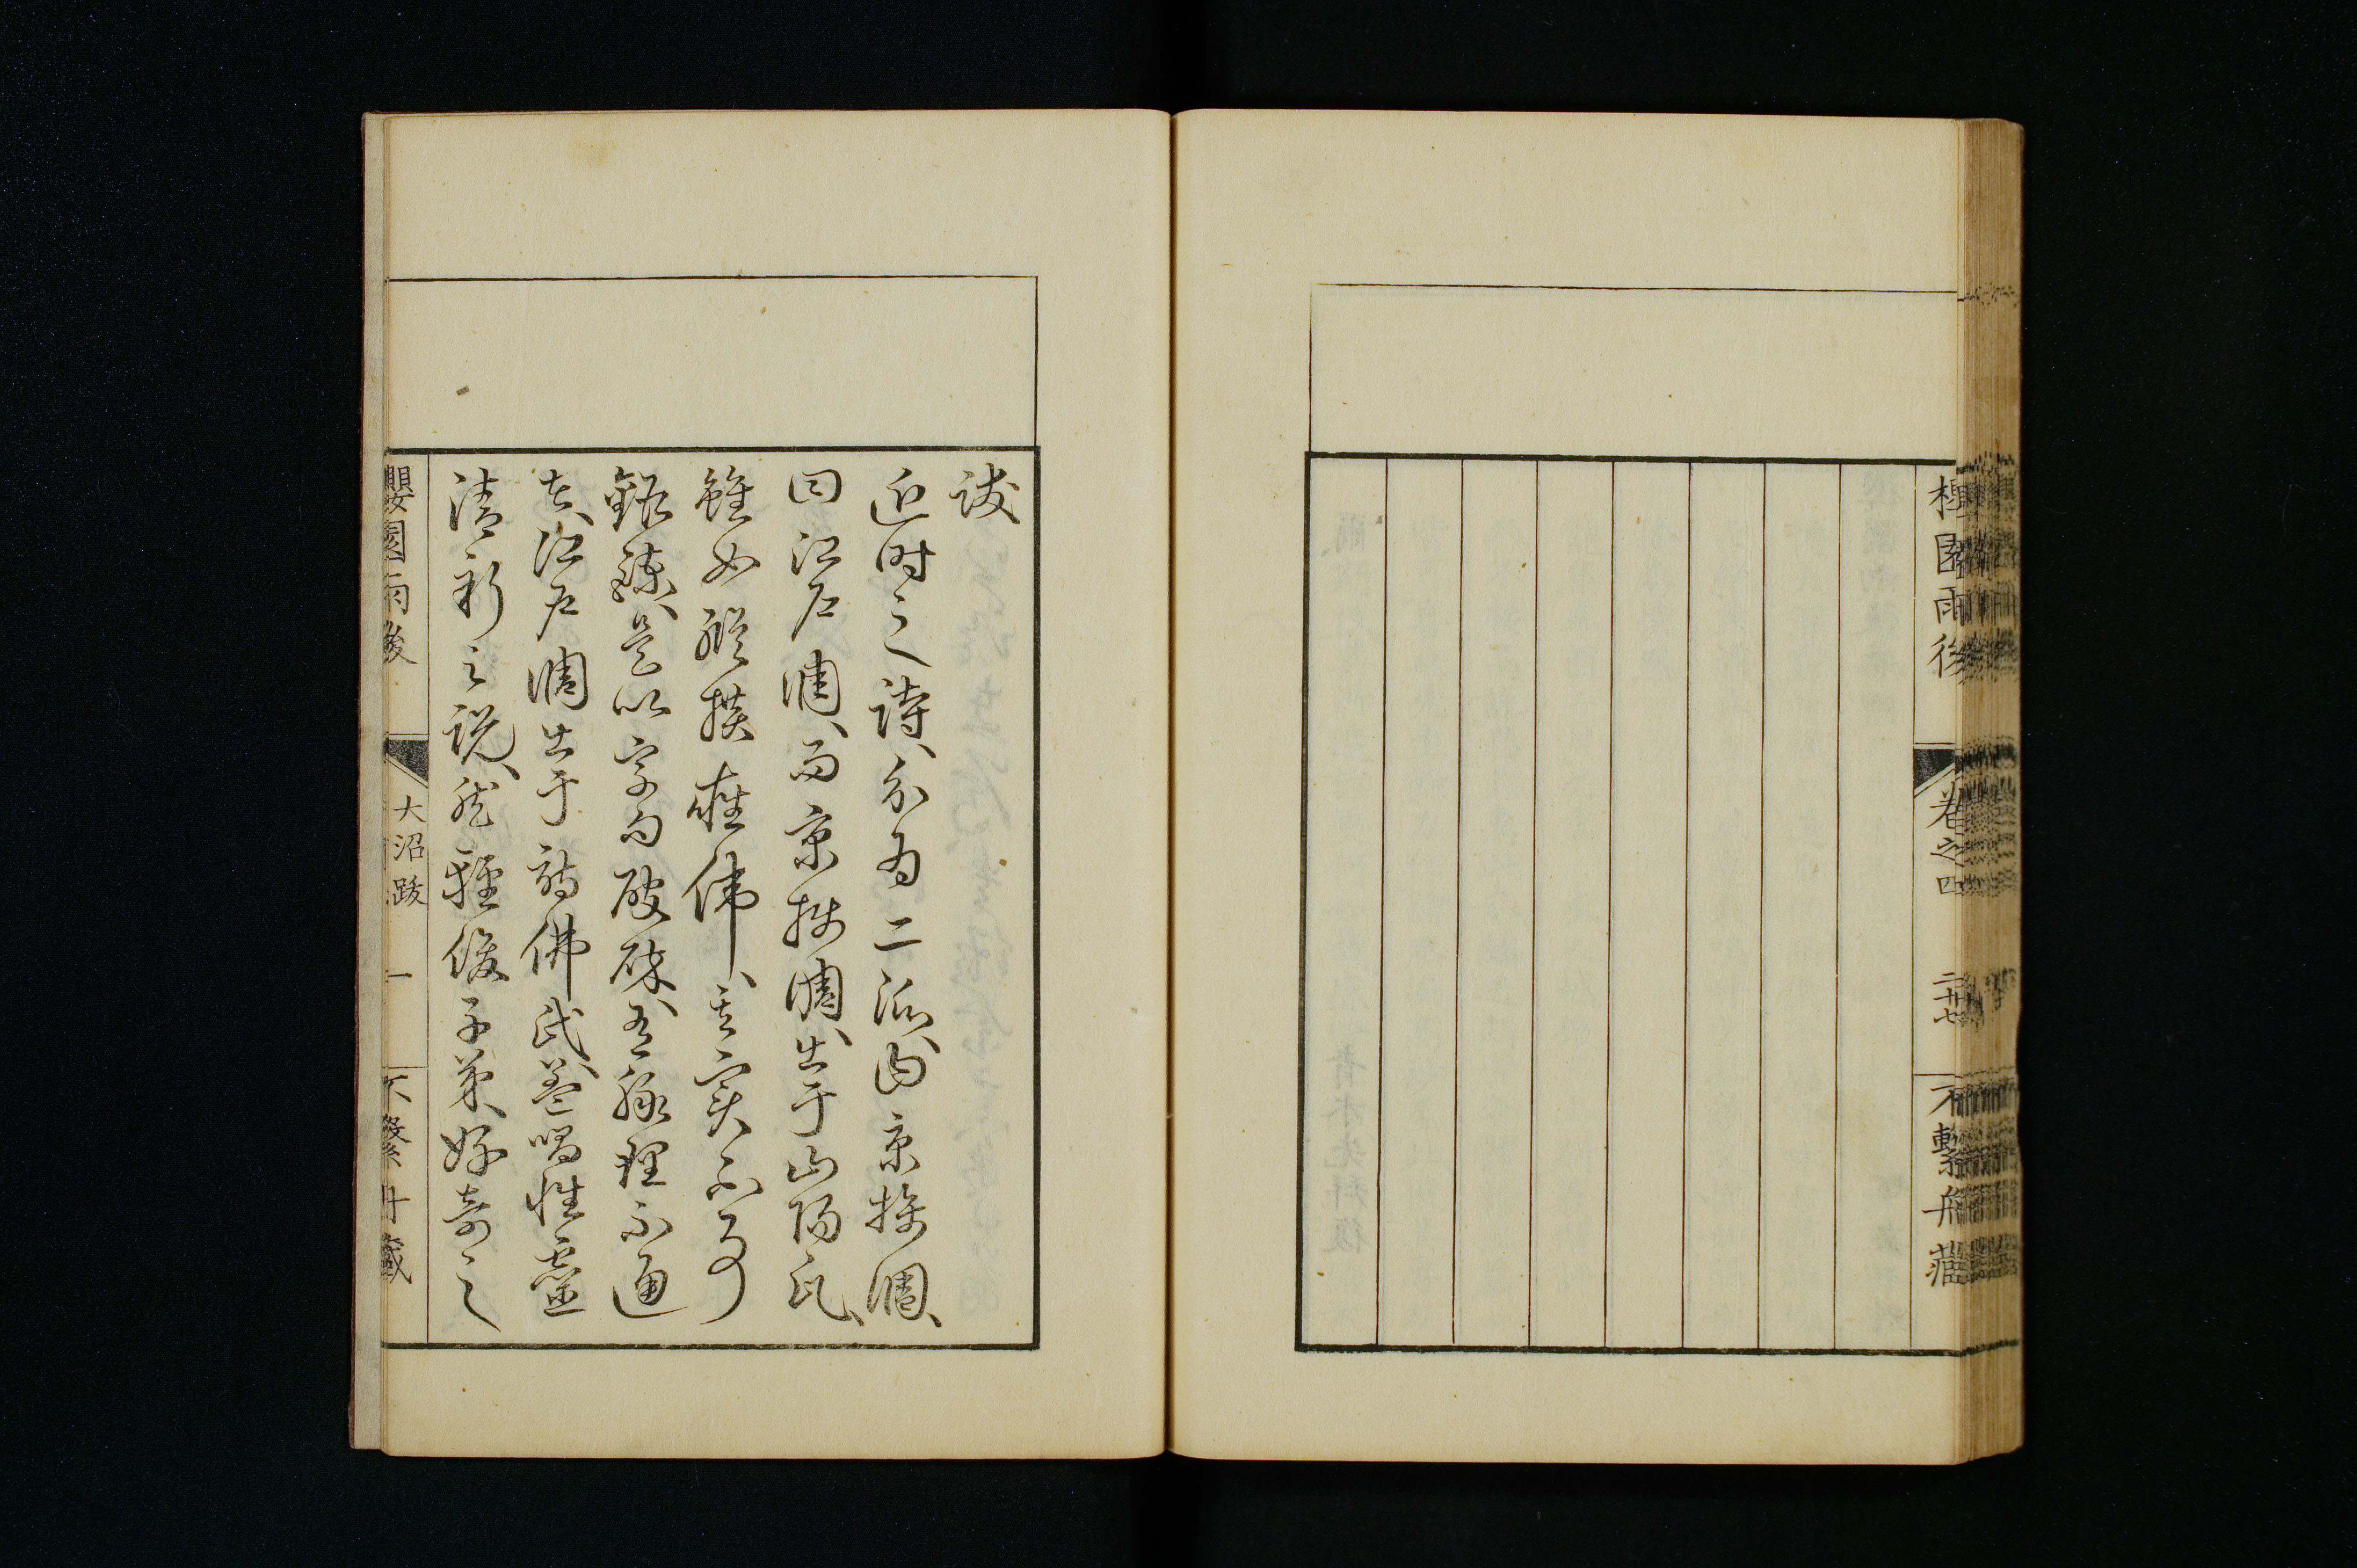 櫻園雨後
卷之四
二十七
不繫舟藏
跋
近时之詩、分为二派、曰京摂調、
曰江戶調、而京摂調、出于山陽氏、
雖如雅摸雄偉、其实不可
鍛鍊、是以字句破碎、或脉理不通
者、江戶調出于詩佛氏、蓋唱性靈
清新之說、然輕俊子弟、好奇之
櫻園雨後
大沼跋
一
不繫舟藏